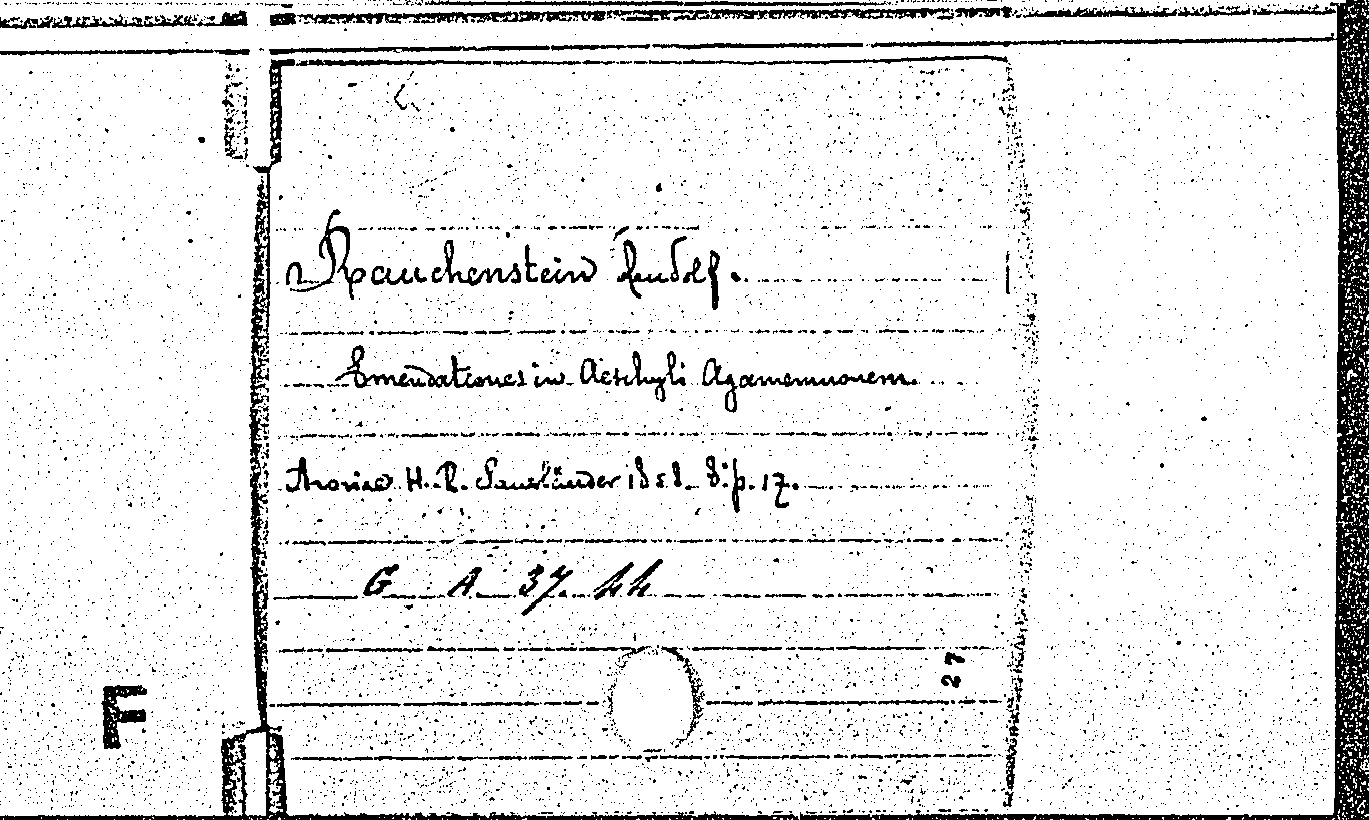 Rauchenstein Rudolf.
Emendationes in Aeschyli Agamemnonem.
Aroviae H. R. Sauerländer 1858. 8.° p. 17.
G A. 37. 44
27
F